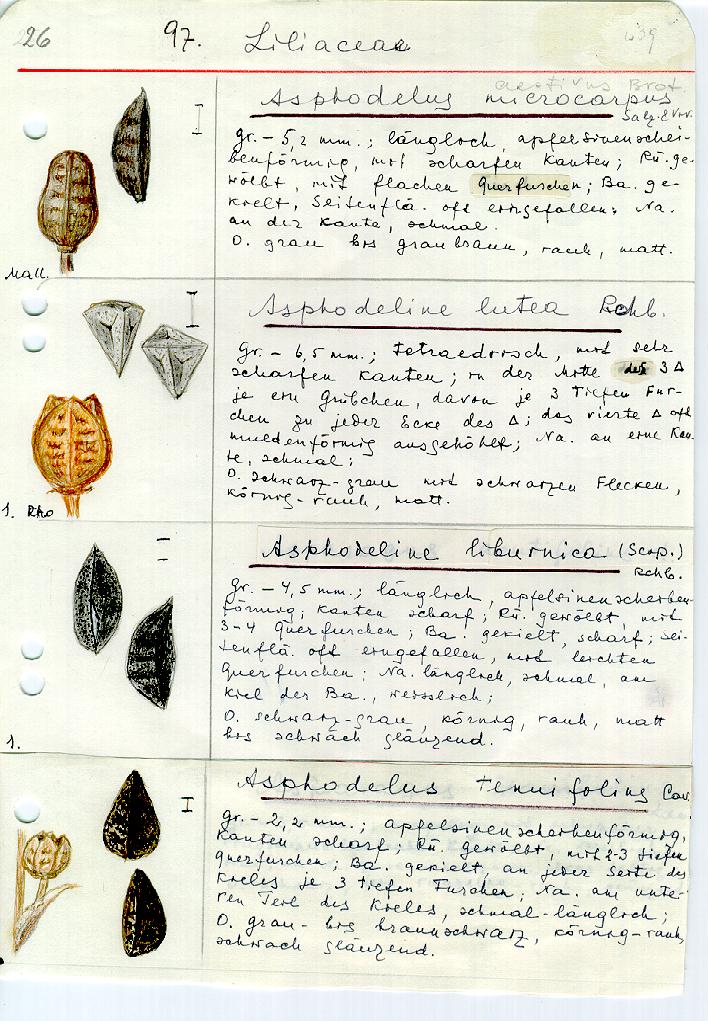 26 97. Liliaceae
aestivus Brot.
Asphodelus microcarpus
Salz. & Viv.
gr. – 5,2 mm.; länglich, apfelsinenschei-
benförmig, mit scharfen Kanten; Rü. ge-
wölbt, mit flachen Querfurchen; Ba. ge-
kielt, Seitenflä. oft eingefallen; Na.
an der Kante, schmal.
O. grau bis graubraun, rauh, matt.
Mall.
Asphodeline lutea Rchb.
Gr. – 6,5 mm.; tetraedrisch, mit sehr
scharfen Kanten; in der Mitte des 3 Δ
je ein Grübchen, davon je 3 tiefen Fur-
chen zu jeder Ecke des Δ; das vierte Δ oft
muldenförmig ausgehöhlt; Na. an eine Kan-
te, schmal;
O. schwarz-grau mit schwarzen Flecken,
körnig-rauh, matt.
1. Rho
Asphodeline liburnica (Scop.)
Rchb.
Gr. – 4,5 mm.; länglich, apfelsinenscheiben-
förmig; Kanten scharf; Rü. gewölbt, mit
3-4 Querfurchen; Ba. gekielt, scharf; Sei-
tenflä. oft eingefallen, mit leichten
Querfurchen; Na. länglich, schmal, am
Kiel der Ba., weisslich;
O. schwarz-grau, körnig, rauh, matt
bis schwach glänzend.
1.
Asphodelus tenuifolius Cav.
gr. – 2,2 mm.; apfelsinenscheibenförmig,
Kanten scharf; Rü. gewölbt, mit 2-3 tiefen
Querfurchen; Ba. gekielt, an jeder Seite des
Kieles je 3 tiefen Furchen; Na. am unte-
ren Teil des Kieles, schmal-länglich;
O. grau- bis braunschwarz, körnig-rauh,
schwach glänzend.